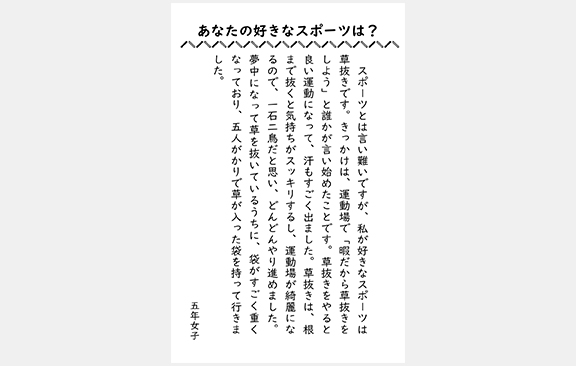 あなたの好きなスポーツは？
スポーツとは言い難いですが、私が好きなスポーツは
草抜きです。きっかけは、運動場で「暇だから草抜きを
しよう」と誰かが言い始めたことです。草抜きをやると
良い運動になって、汗もすごく出ました。草抜きは、根
まで抜くと気持ちがスッキリするし、運動場が綺麗にな
るので、一石二鳥だと思い、どんどんやり進めました。
夢中になって草を抜いているうちに、袋がすごく重く
なっており、五人がかりで草が入った袋を持って行きま
した。
五年女子